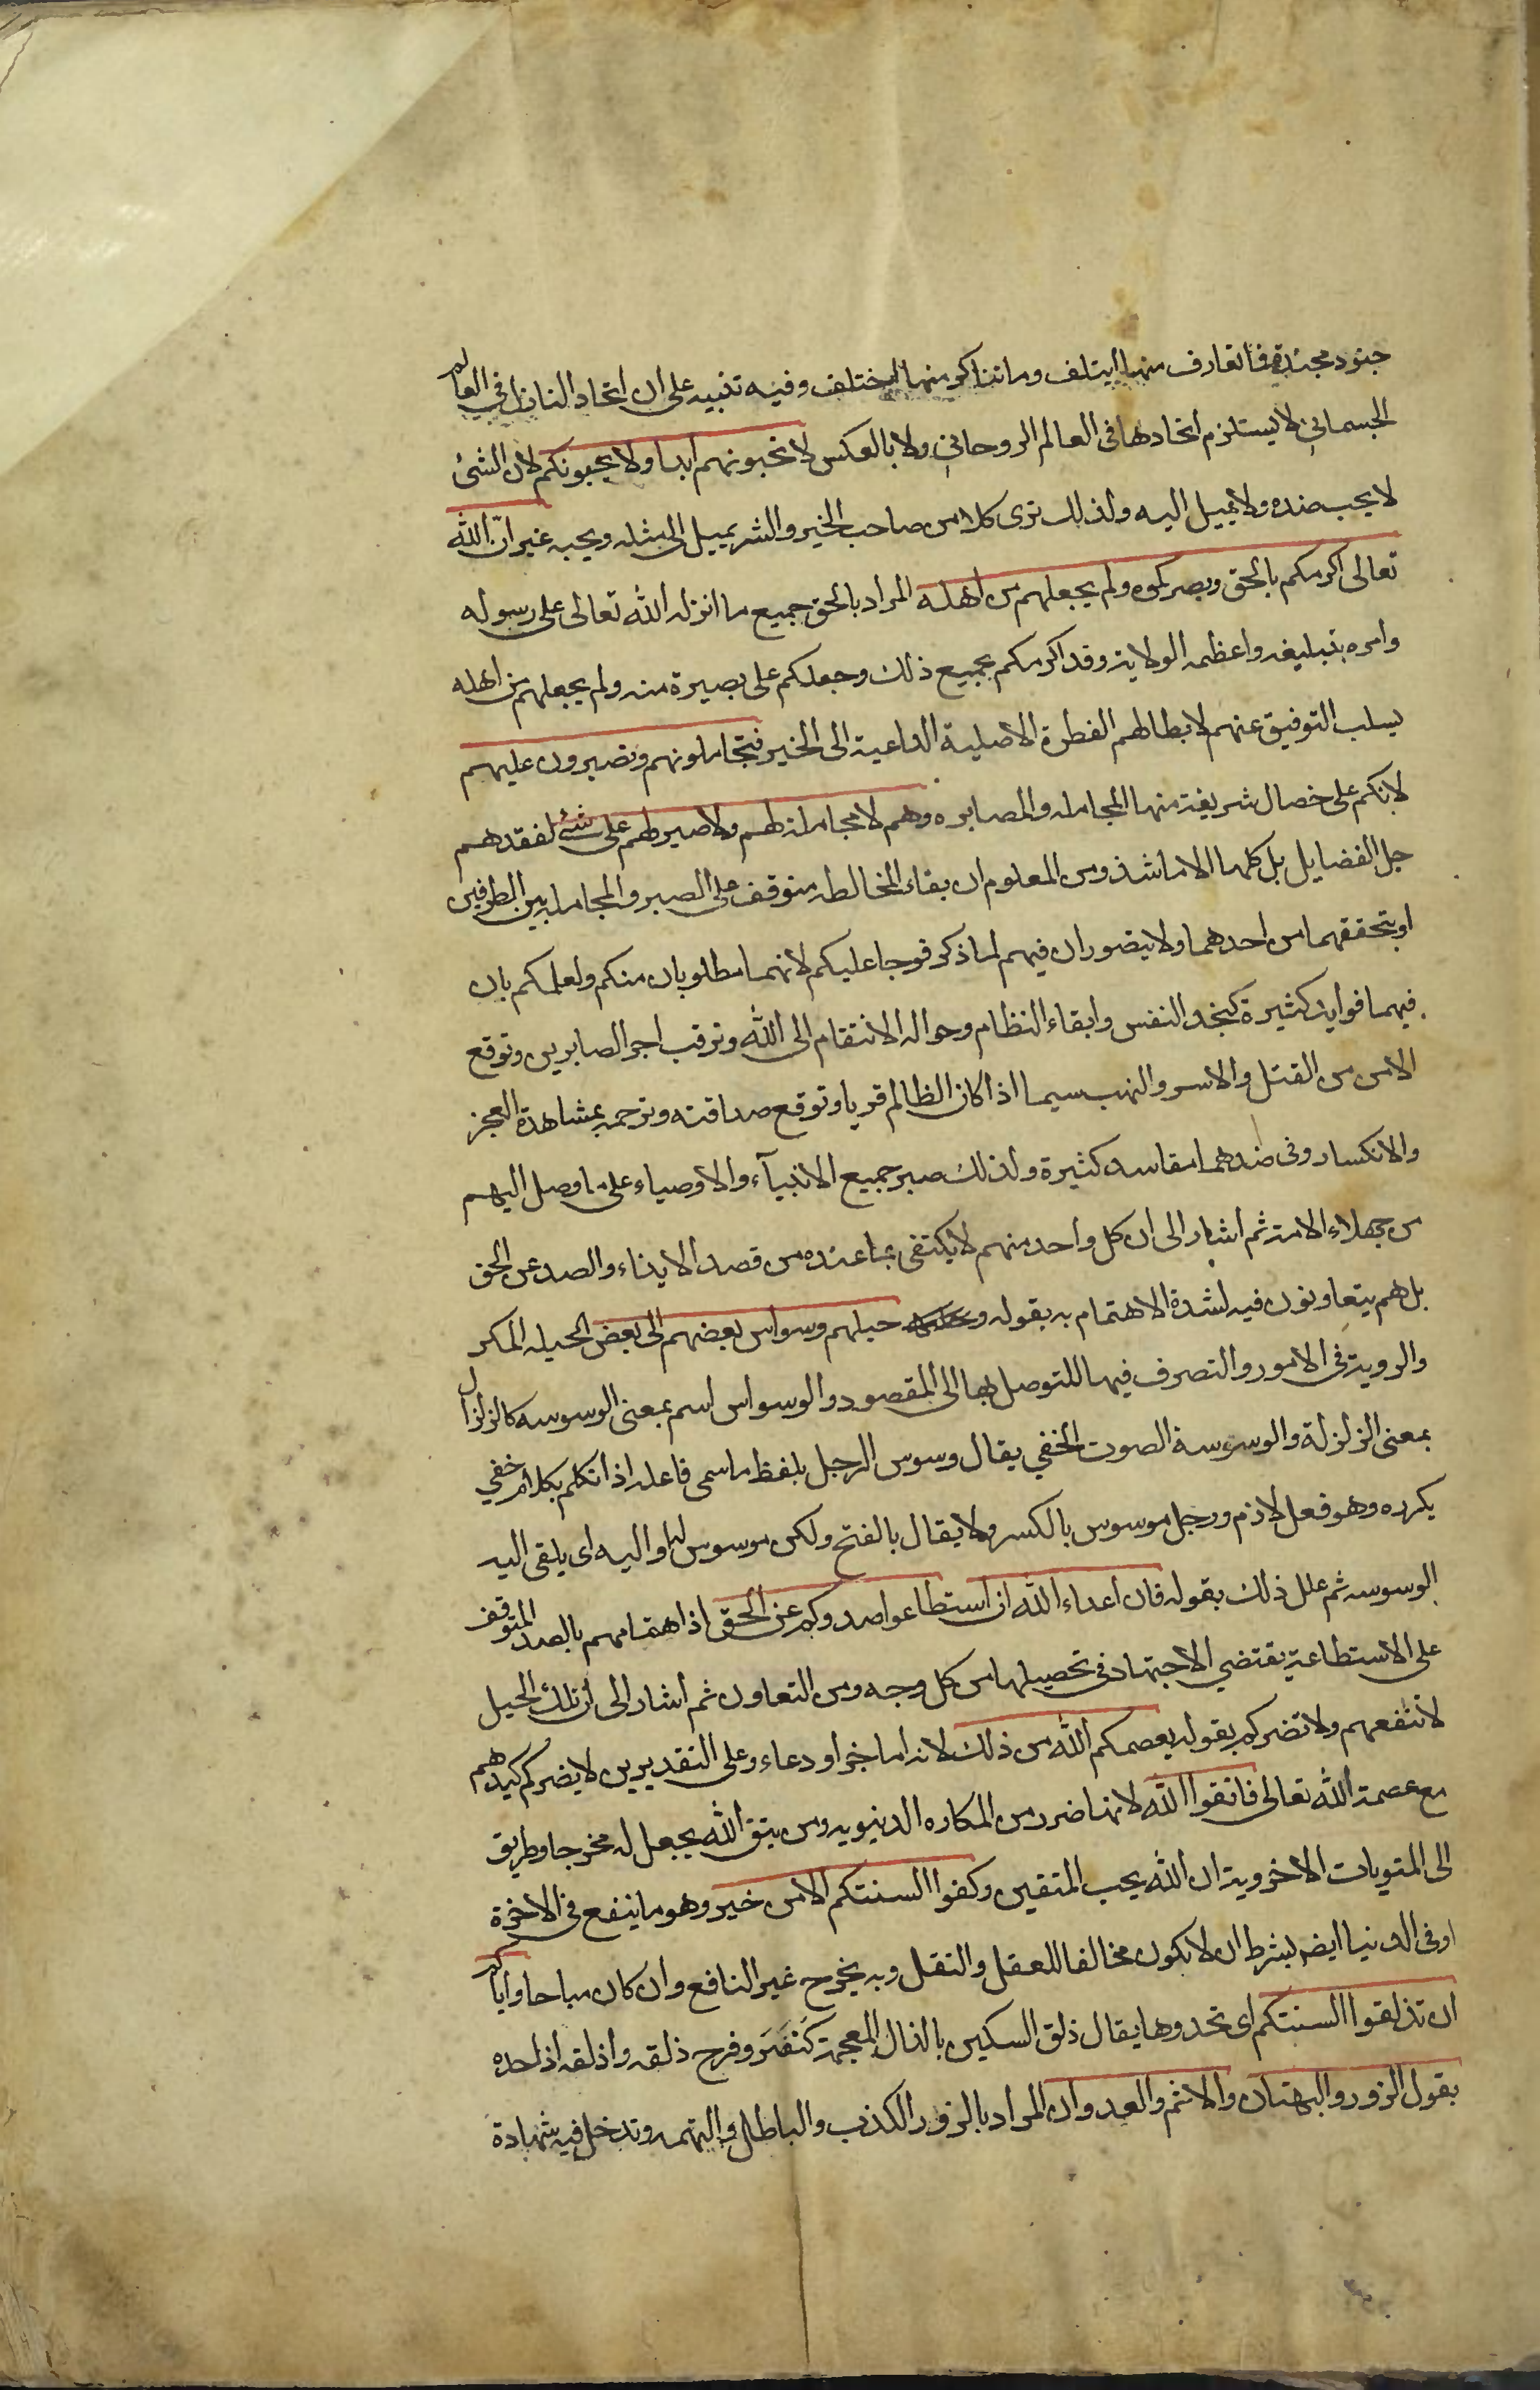 جنود مجندة فما تعارف منها ايتلف وما تناكر منها اختلف وفيه تنبيه على ان اتحاد الناس في العالم
الجسماني لا يستلزم اتحادها في العالم الروحاني ولا بالعكس لا تحبونهم ابدا ولا يحبونكم لان الشئ
لا يحب ضده ولا يميل اليه ولذلك ترى كلا من صاحب الخير والشر يميل الى مثله ويحبه غير انّ الله
تعالى اكرمكم بالحق وبصركموه ولم يجعلهم من اهله المراد بالحق جميع ما انزله الله تعالى على رسوله
وامره بتبليغه واعظمه الولاية وقد اكرمكم بجميع ذلك وجعلكم على بصيرة منه ولم يجعلهم من اهله
بسلب التوفيق عنهم لابطالهم الفطرة الاصلية الداعية الى الخير فتجاملونهم وتصبرون عليهم
لانكم على خصال شريفة منها المجامله والمصابره وهم لا مجاملة لهم ولا صبر لهم على شئ لفقدهم
جل الفضايل بل كلها الا ما شذ ومن المعلوم ان بقاء المخالطه متوقف على الصبر والمجامله بين الطرفين
او بتحققهما من احدهما ولا يتصوران فيهم لما ذكر فوجبا عليكم لانهما مطلوبان منكم ولعلمكم بان
فيهما فوايد كثيرة كـ النفس وابقاء النظام وحواله الانتقام الى الله وترقب اجر الصابرين وتوقع
الامن من القتل والاسر والنهب سيما اذا كان الظالم قويا وتوقع صداقته وترحمه بمشاهدة العجز
والانكسار وفى ضدهما مفاسد كثيرة ولذلك صبر جميع الانبيآء والاوصياء على ما وصل اليهم
من جهلاء الامة ثم اشار الى ان كل واحد منهم لا يكتفى بما عنده من قصد الايذاء والصد عن الحق
بل هم يتعاونون فيه لشدة الاهتمام به بقوله و حيلهم وسواس بعضهم الى بعض الحيله المكر
والروية فى الامور والتصرف فيها للتوصل بها الى المقصود والوسواس اسم بمعنى الوسوسه كالزلزال
بمعنى الزلزلة والوسوسة الصوت الخفي يقال وسوس الرجل بلفظ ما سمى فاعله اذا تكلم بكلام خفي
يكرره وهو فعل لازم ورجل موسوس بالكسر ولا يقال بالفتح ولكن موسوس له او اليه اى يلقى اليه
الوسوسه ثم علل ذلك بقوله فان اعداء الله ان استطاعوا صدوكم عن الحق اذ اهتمامهم بالصد المتوقف
على الاستطاعة يقتضي الاجتهاد فى تحصيلها من كل وجه ومن التعاون ثم اشار الى ان تلك الحيل
لا تنفعهم ولا تضركم بقوله يعصمكم الله من ذلك لانه اما خبر او دعاء وعلى التقديرين لا يضركم كيدهم
مع عصمة الله تعالى فاتقوا الله لانها ضرر من المكاره الدنيويه ومن يتق الله يجعل له مخرجا وطريق
الى المثوبات الاخروية ان الله يحب المتقين وكفوا السنتكم الا من خير وهو ما ينفع فى الاخرة
او فى الدنيا ايضا بشرط ان لا يكون مخالفا للعقل والنقل وبه يخرج غير النافع وان كان مباحا واياكم
ان تذلقوا السنتكم اى تحدوها يقال ذلق السكين بالذال المعجمة كنصر وفرح ذلقه واذلقه اذا حده
بقول الزور والبهتان والاثم والعدوان المراد بالزور الكذب والباطل والتهمه وتدخل فيه شهادة